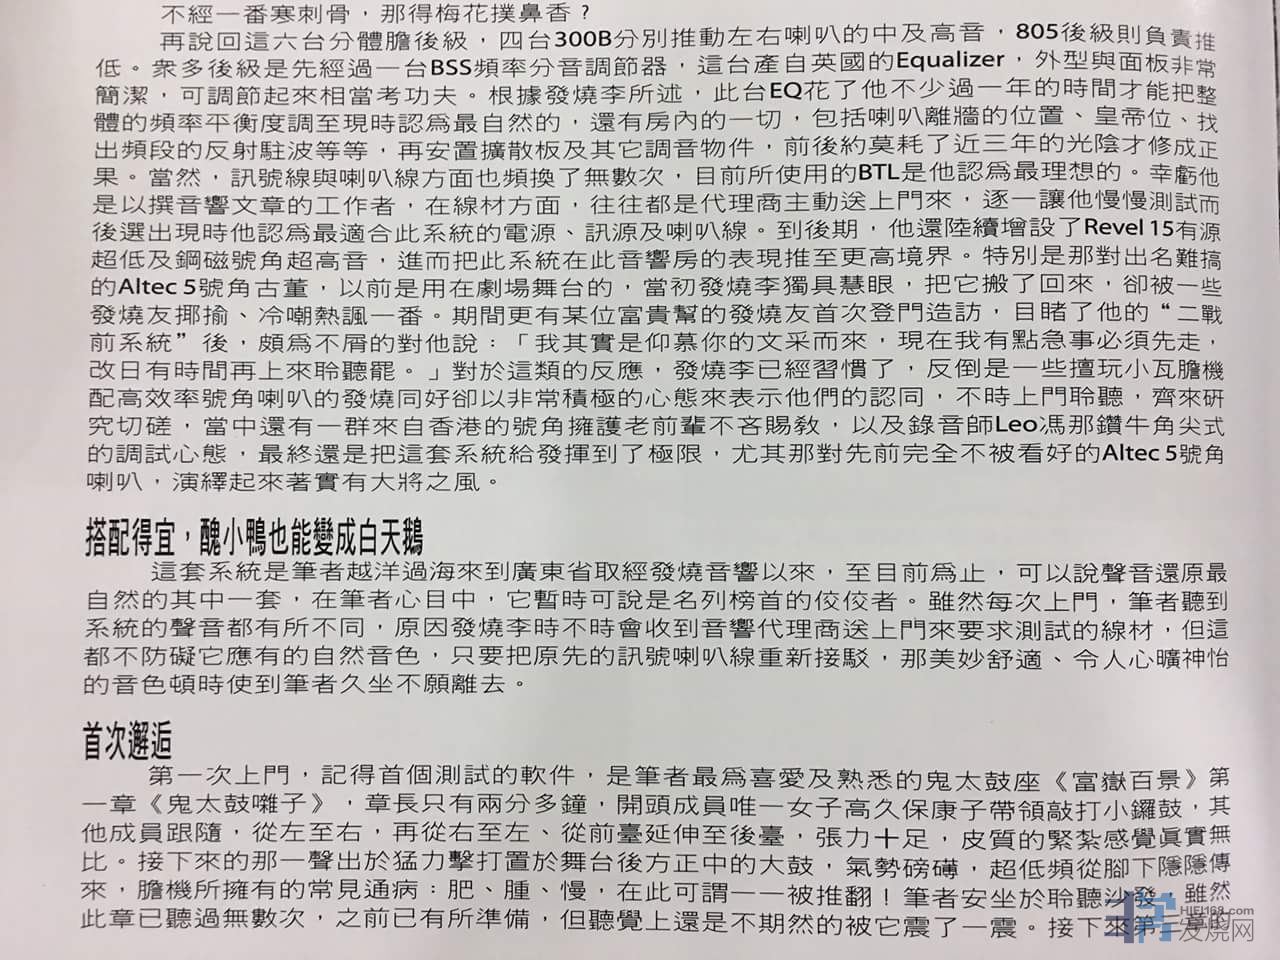 不經一番寒刺骨，那得梅花撲鼻香？
再說回這六台分體膽後級，四台300B分別推動左右喇叭的中及高音，805後級則負責推
低。衆多後級是先經過一台BSS頻率分音調節器，這台產自英國的Equalizer，外型與面板非常
簡潔，可調節起來相當考功夫。根據發燒李所述，此台EQ花了他不少過一年的時間才能把整
體的頻率平衡度調至現時認爲最自然的，還有房內的一切，包括喇叭離牆的位置、皇帝位、找
出頻段的反射駐波等等，再安置擴散板及其它調音物件，前後約莫耗了近三年的光陰才修成正
果。當然，訊號線與喇叭線方面也頻換了無數次，目前所使用的BTL是他認爲最理想的。幸虧他
是以撰音響文章的工作者，在線材方面，往往都是代理商主動送上門來，逐一讓他慢慢測試而
後選出現時他認爲最適合此系統的電源、訊源及喇叭線。到後期，他還陸續增設了Revel 15有源
超低及鋼磁號角超高音，進而把此系統在此音響房的表現推至更高境界。特別是那對出名難搞
的Altec 5號角古董，以前是用在劇場舞台的，當初發燒李獨具慧眼，把它搬了回來，卻被一些
發燒友揶揄、冷嘲熱諷一番。期間更有某位富貴幫的發燒友首次登門造訪，目睹了他的“二戰
前系統”後，頗爲不屑的對他說：「我其實是仰慕你的文采而來，現在我有點急事必須先走，
改日有時間再上來聆聽罷。」對於這類的反應，發燒李已經習慣了，反倒是一些擅玩小瓦膽機
配高效率號角喇叭的發燒同好卻以非常積極的心態來表示他們的認同，不時上門聆聽，齊來研
究切磋，當中還有一群來自香港的號角擁護老前輩不吝賜教，以及錄音師Leo馮那鑽牛角尖式
的調試心態，最終還是把這套系統給發揮到了極限，尤其那對先前完全不被看好的Altec 5號角
喇叭，演繹起來著實有大將之風。
搭配得宜，醜小鴨也能變成白天鵝
這套系統是筆者越洋過海來到廣東省取經發燒音響以來，至目前爲止，可以說聲音還原最
自然的其中一套，在筆者心目中，它暫時可說是名列榜首的佼佼者。雖然每次上門，筆者聽到
系統的聲音都有所不同，原因發燒李時不時會收到音響代理商送上門來要求測試的線材，但這
都不防礙它應有的自然音色，只要把原先的訊號喇叭線重新接駁，那美妙舒適、令人心曠神怡
的音色頓時使到筆者久坐不願離去。
首次邂逅
第一次上門，記得首個測試的軟件，是筆者最爲喜愛及熟悉的鬼太鼓座《富嶽百景》第
一章《鬼太鼓囃子》，章長只有兩分多鐘，開頭成員唯一女子高久保康子帶領敲打小鑼鼓，其
他成員跟隨，從左至右，再從右至左、從前臺延伸至後臺，張力十足，皮質的緊紮感覺眞實無
比。接下來的那一聲出於猛力擊打置於舞台後方正中的大鼓，氣勢磅礡，超低頻從腳下隱隱傳
來，膽機所擁有的常見通病：肥、腫、慢，在此可謂一一被推翻！筆者安坐於聆聽沙發，雖然
此章已聽過無數次，之前已有所準備，但聽覺上還是不期然的被它震了一震。接下來第二章的
HIFI168.com
发烧网